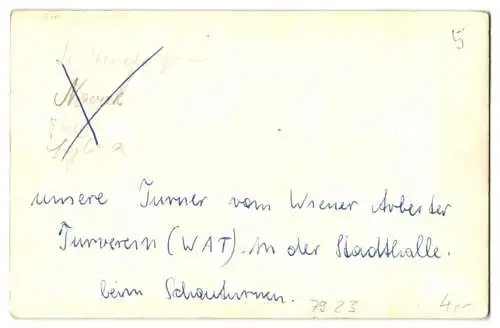 5
unsere Turner vom Wiener Arbeiter
Turverein (WAT) in der Stadthalle.
beim Schauturnen.
7923
4,-